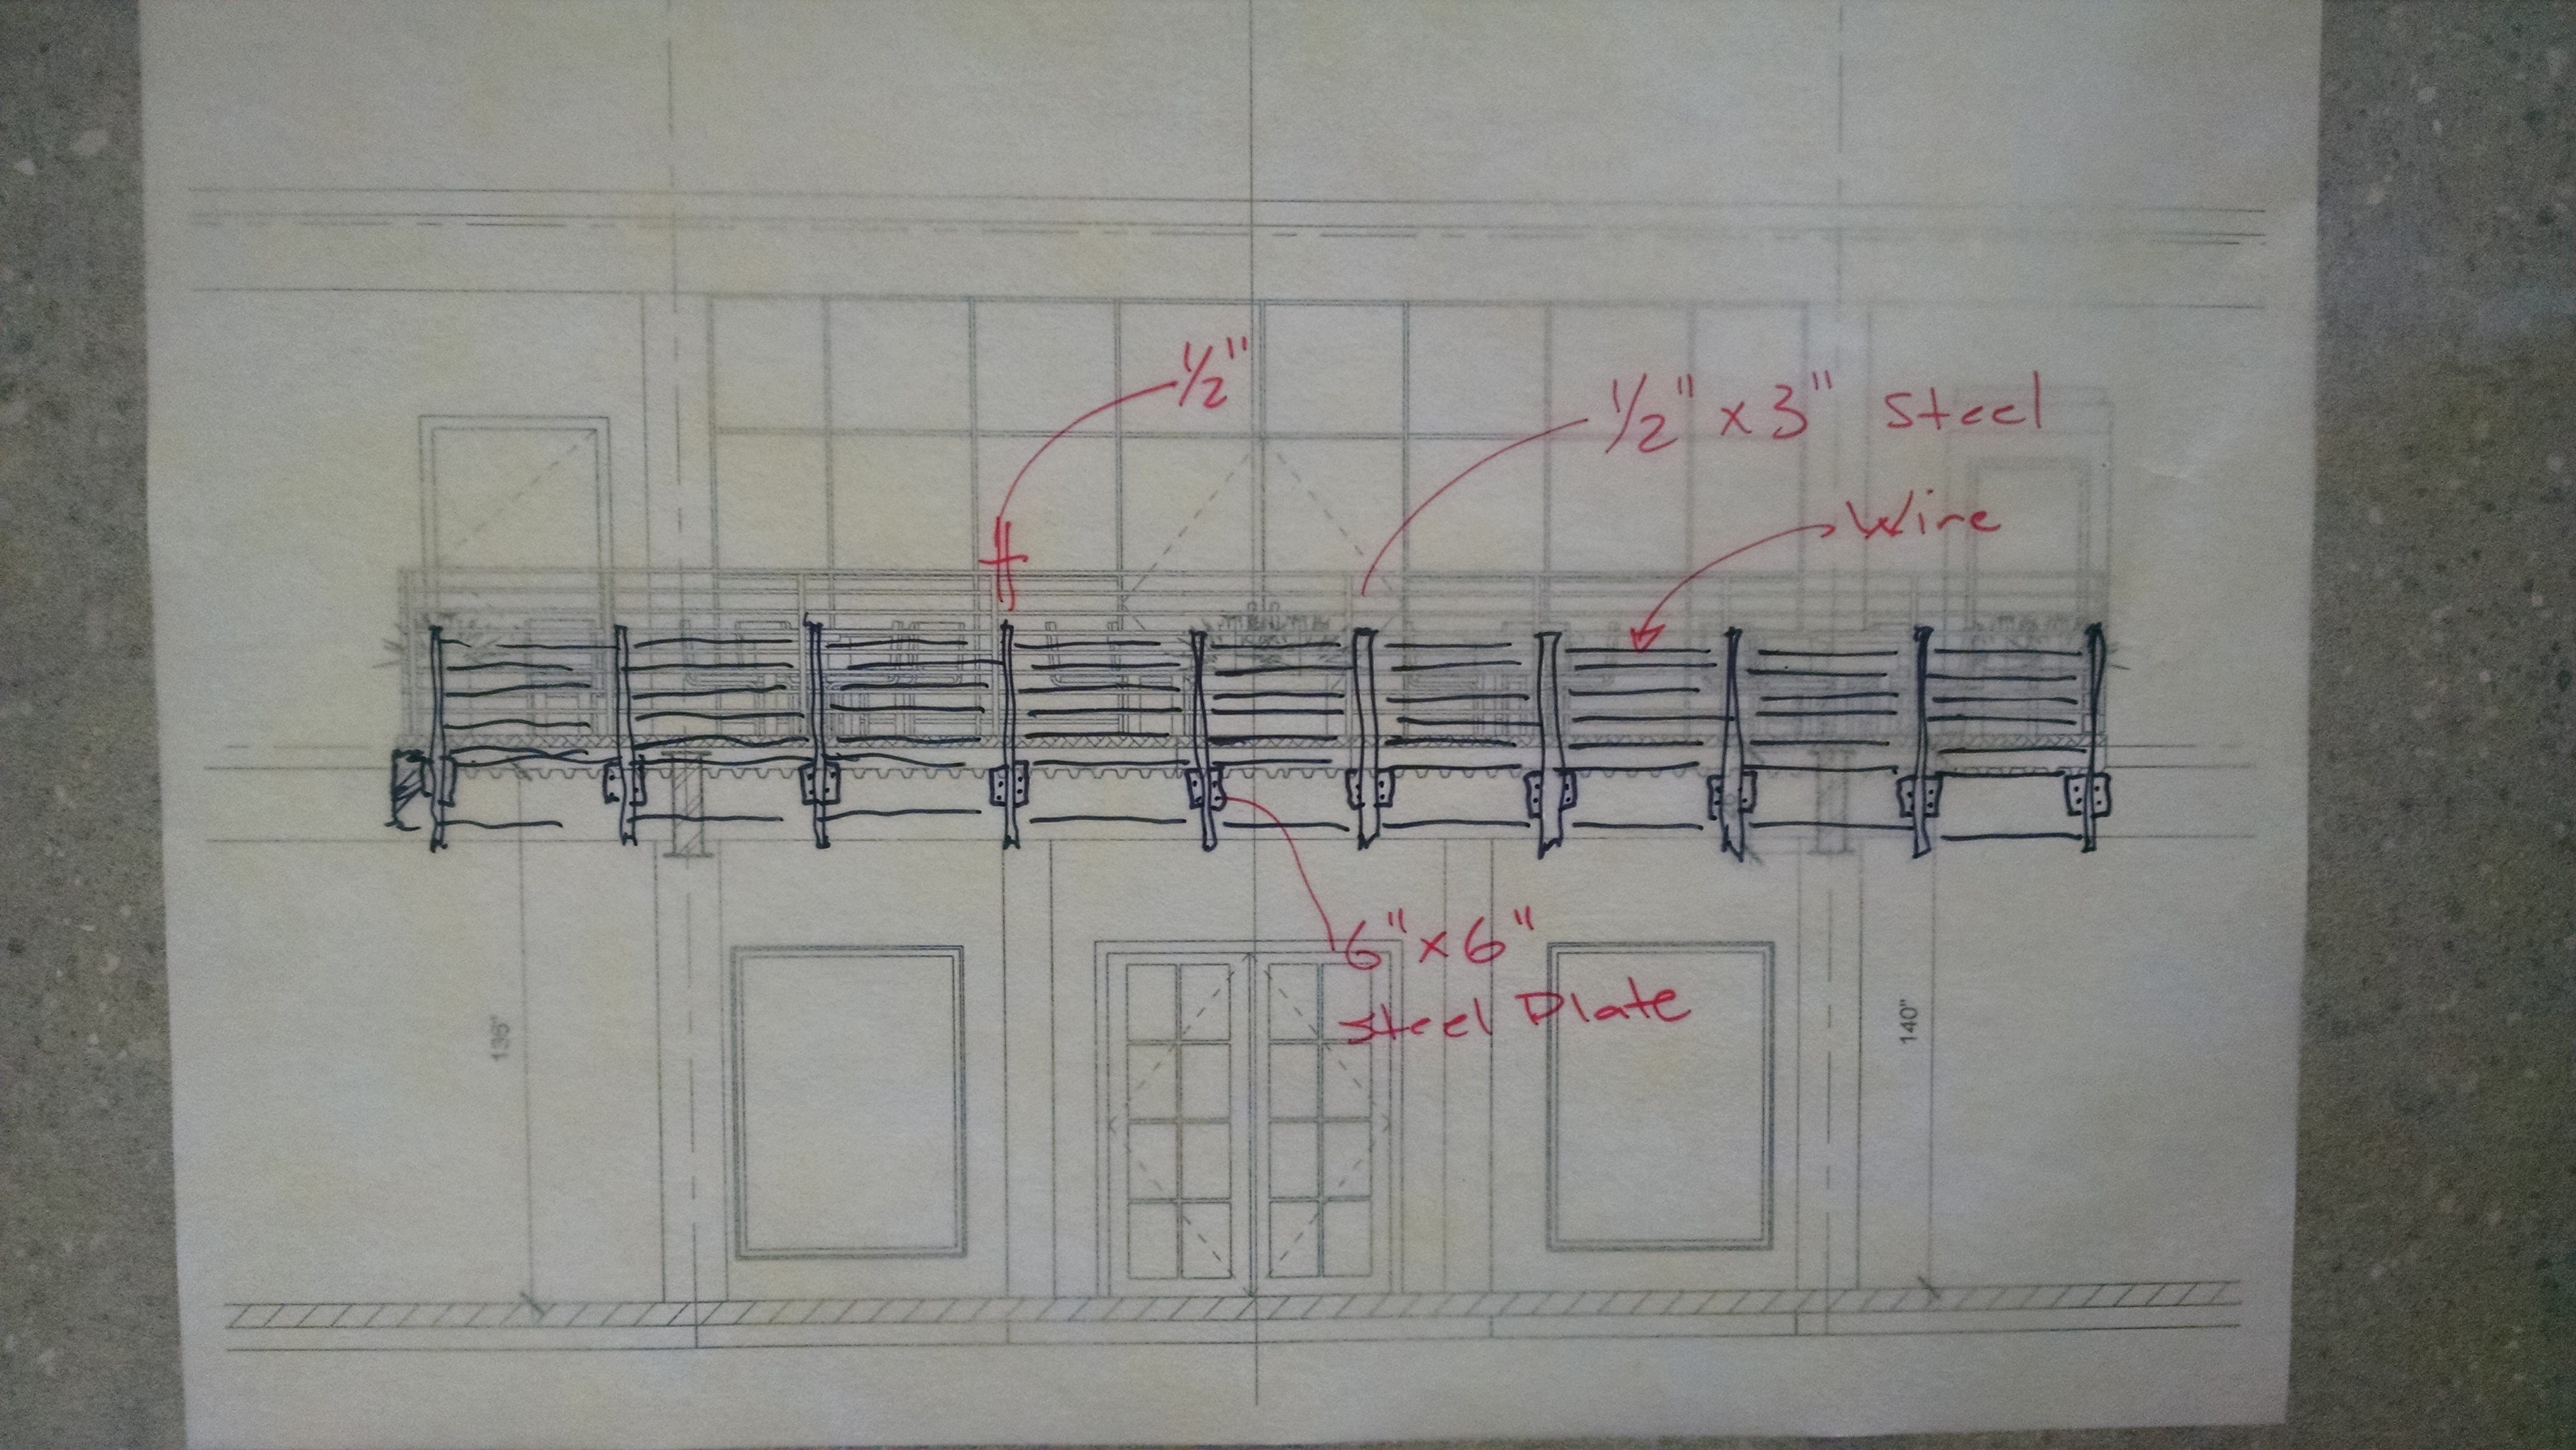 1/2"
1/2" x 3" Steel
Wire
6" x 6"
Steel Plate
136"
140"